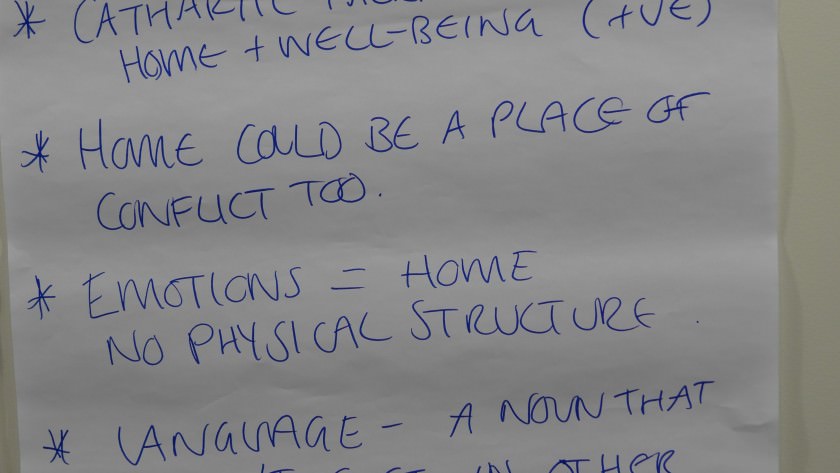 * CATHARTIC
HOME + WELL-BEING (+VE)
* HOME COULD BE A PLACE OF
CONFLICT TOO.
* EMOTIONS = HOME
NO PHYSICAL STRUCTURE.
* LANGUAGE - A NOUN THAT
IN OTHER